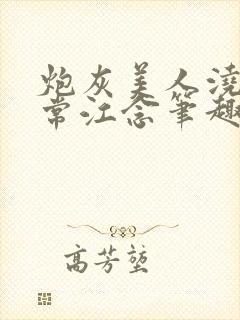 炮灰美人浇
常江念笔趣
高芳堃